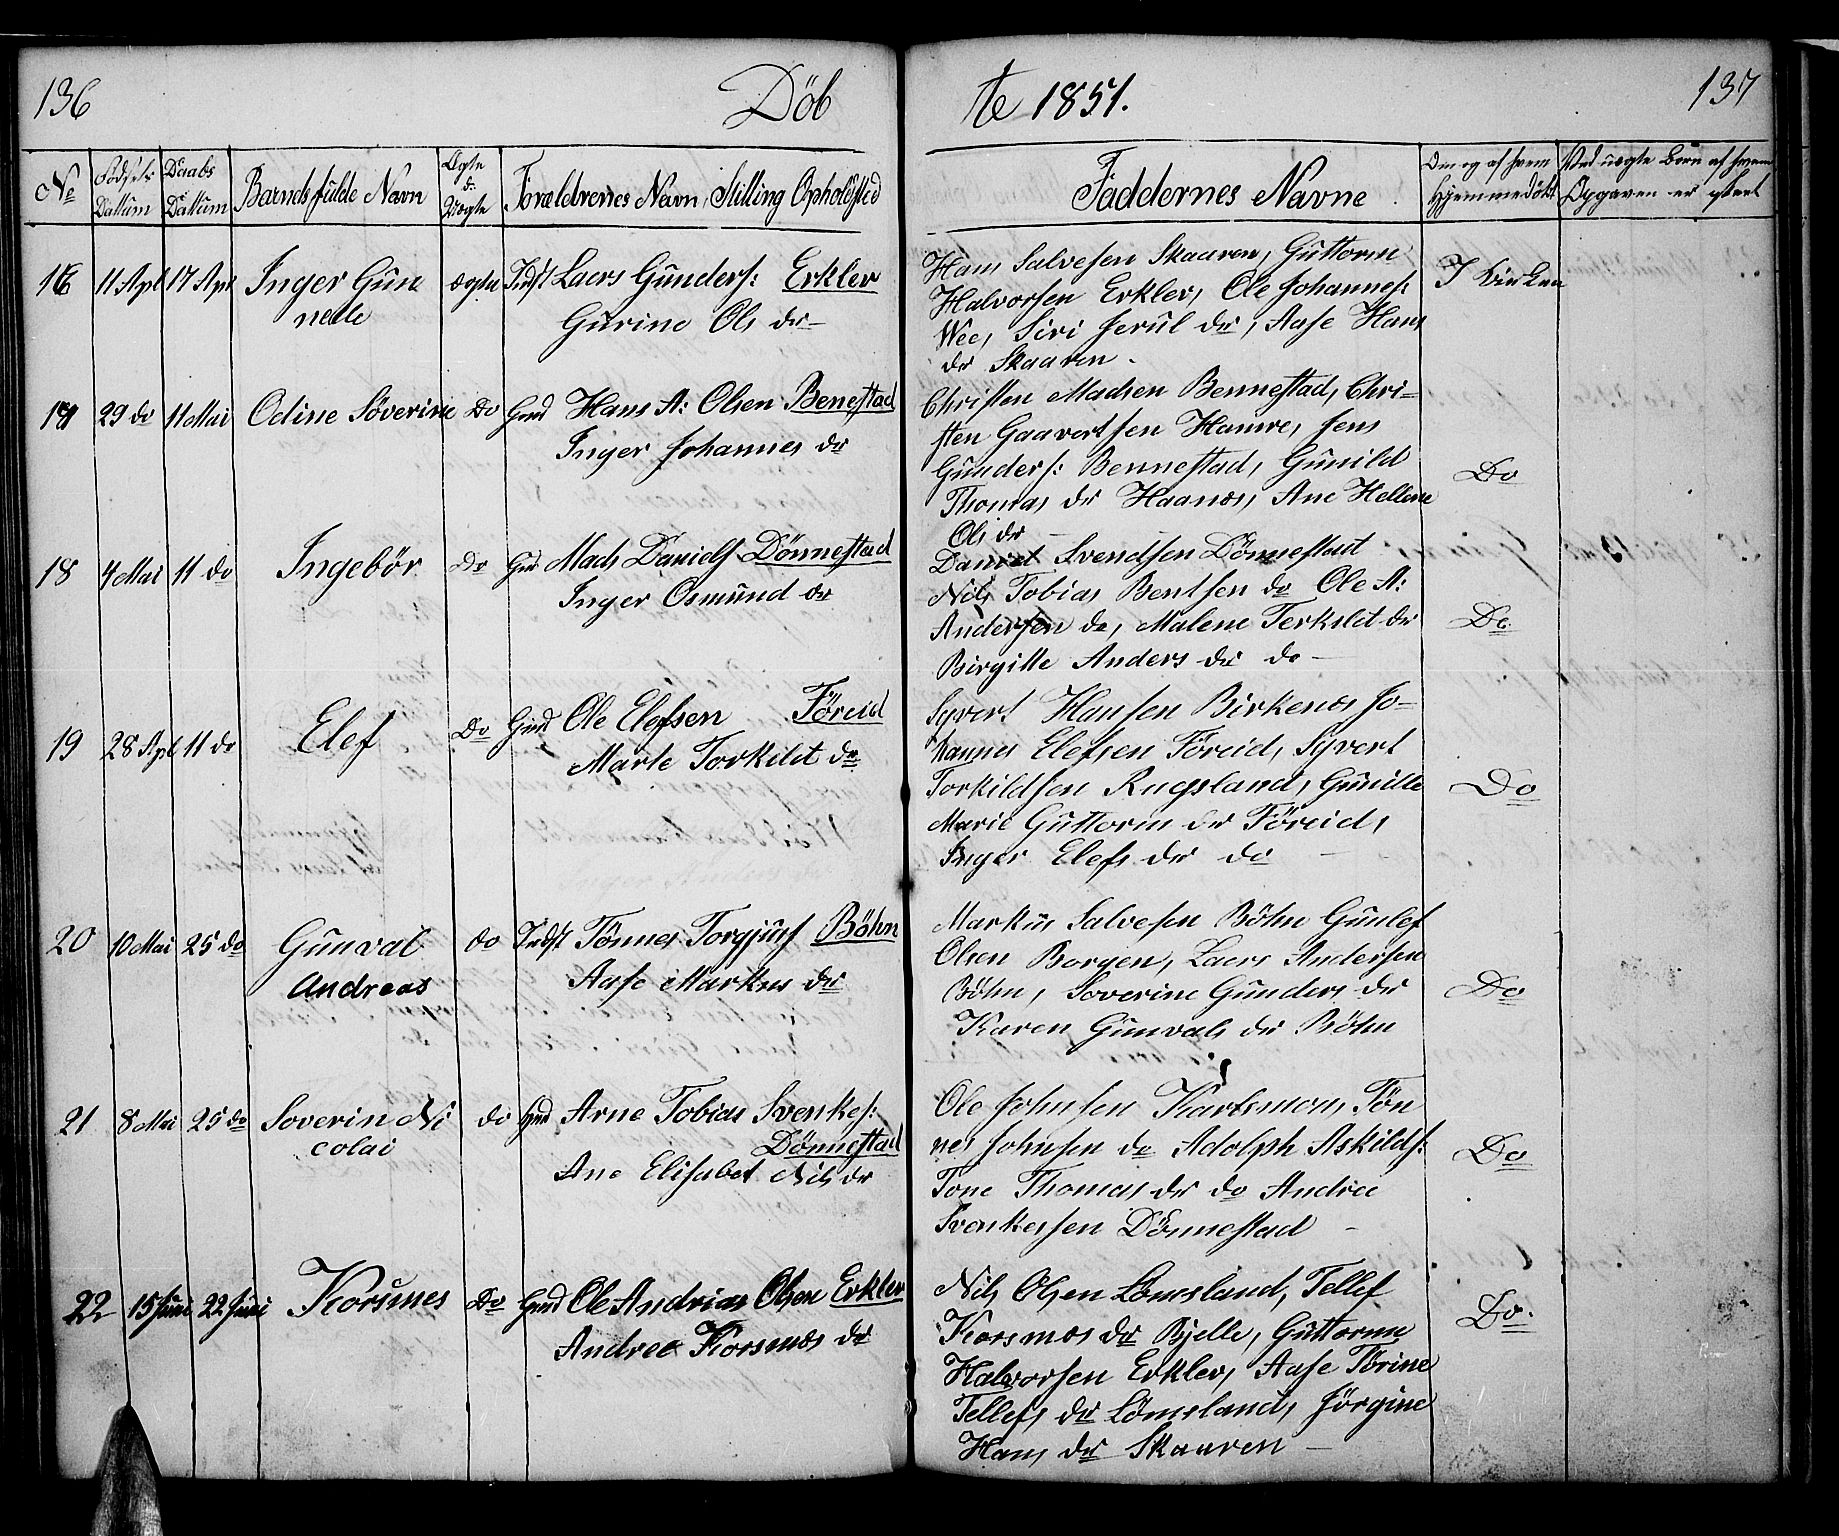 136
Döb
te 1851.
137
No
Fødsels Dattum
Daabs Dattum
Barnets fulde Navn
Ægte el. Uægte
Forældrenes Navn, Stilling Opholdsted
Faddernes Navne
Om og af hvem Hjemmedøbt
Ved uægte Børn af hvem Opgaven er skeet
16 11 Apl 17 Apr Inger Gun
nelle
ægte Indst Laers Gunders: Erkler
Gurine Ols dr –
Hans Salvesen Skaaren, Guttorm
Halvorsen Erkler, Ole Johannes:
Wee, Siri Jerul dr, Aase Hans
dr Skaaren –
I Kirken
17 29 do 11 Mai Odine Söverine Do Grd Hans A: Olsen Benestad
Inger Johannes dr
Christen Madsen Bennestad, Chri-
sten Gaavertsen Hamre, Jens
Gunders: Bennestad, Gunild
Thomas dr Haanes, Ane Hellene
Ols dr –
Do
18 4 Mai 11 do Ingebör Do Grd Mads Daniels Dönnestad
Inger Osmund dr
Daniel Svendsen Dönnestad
Nils Tobias Bentsen do Ole A:
Andersen do, Malene Terkelst dr
Birgitte Anders dr do –
Do
19 28 Apl 11 do Elef Do Grd Ole Elefsen Föreid
Marte Torkilst dr
Syvert Hansen Birkenes Jo-
hannes Elefsen Föreid, Syvert
Torkildsen Rugsland, Gunille
Marie Guttorm dr Föreid,
Inger Elefs dr do –
Do
20 10 Mai 25 do Gunval
Andreas
do Indst Tönnes Torgjus Böhn
Aase Markus dr
Markus Salvesen Böhn Gunlef
Olsen Borgen, Laers Andersen
Böhn, Soverine Gunders dr
Karen Gunvals dr Böhn
Do
21 8 Mai 25 do Soverin Ni
colai
do Grd Arne Tobias Svenkes:
Dönnestad
Ane Elisabet Nils dr
Ole Johnsen Kartsmon, Tön
nes Johnsen do Adolph Askilds:
Tone Thomas dr do Andree
Svenkesen Dönnestad –
Do
22 15 Juni 22 Juni Korsmes Do Grd Ole Andrias Olsen Erkler
Andree Korsmos dr
Nils Olsen Lömsland, Tellef
Korsmos dr Bjelle, Guttorm
Halvorsen Erkler, Aase Törine
Tellefs dr Lömsland, Jörgine
Hans dr Skaaren –
Do.